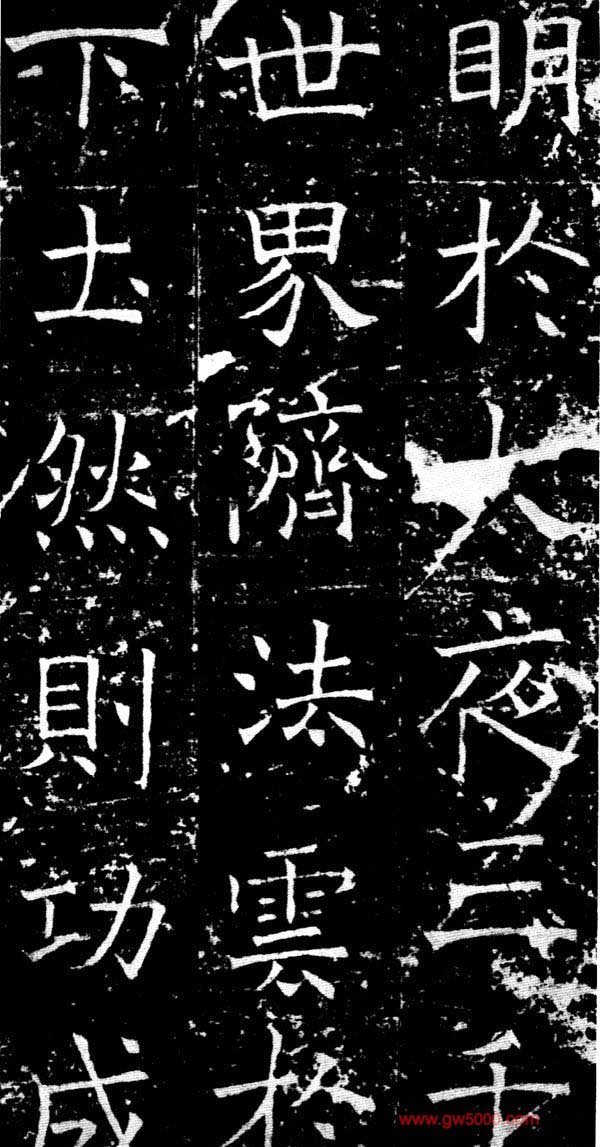 明於大夜三千
世界隮法雲於
下土然則功成
www.gw5000.com